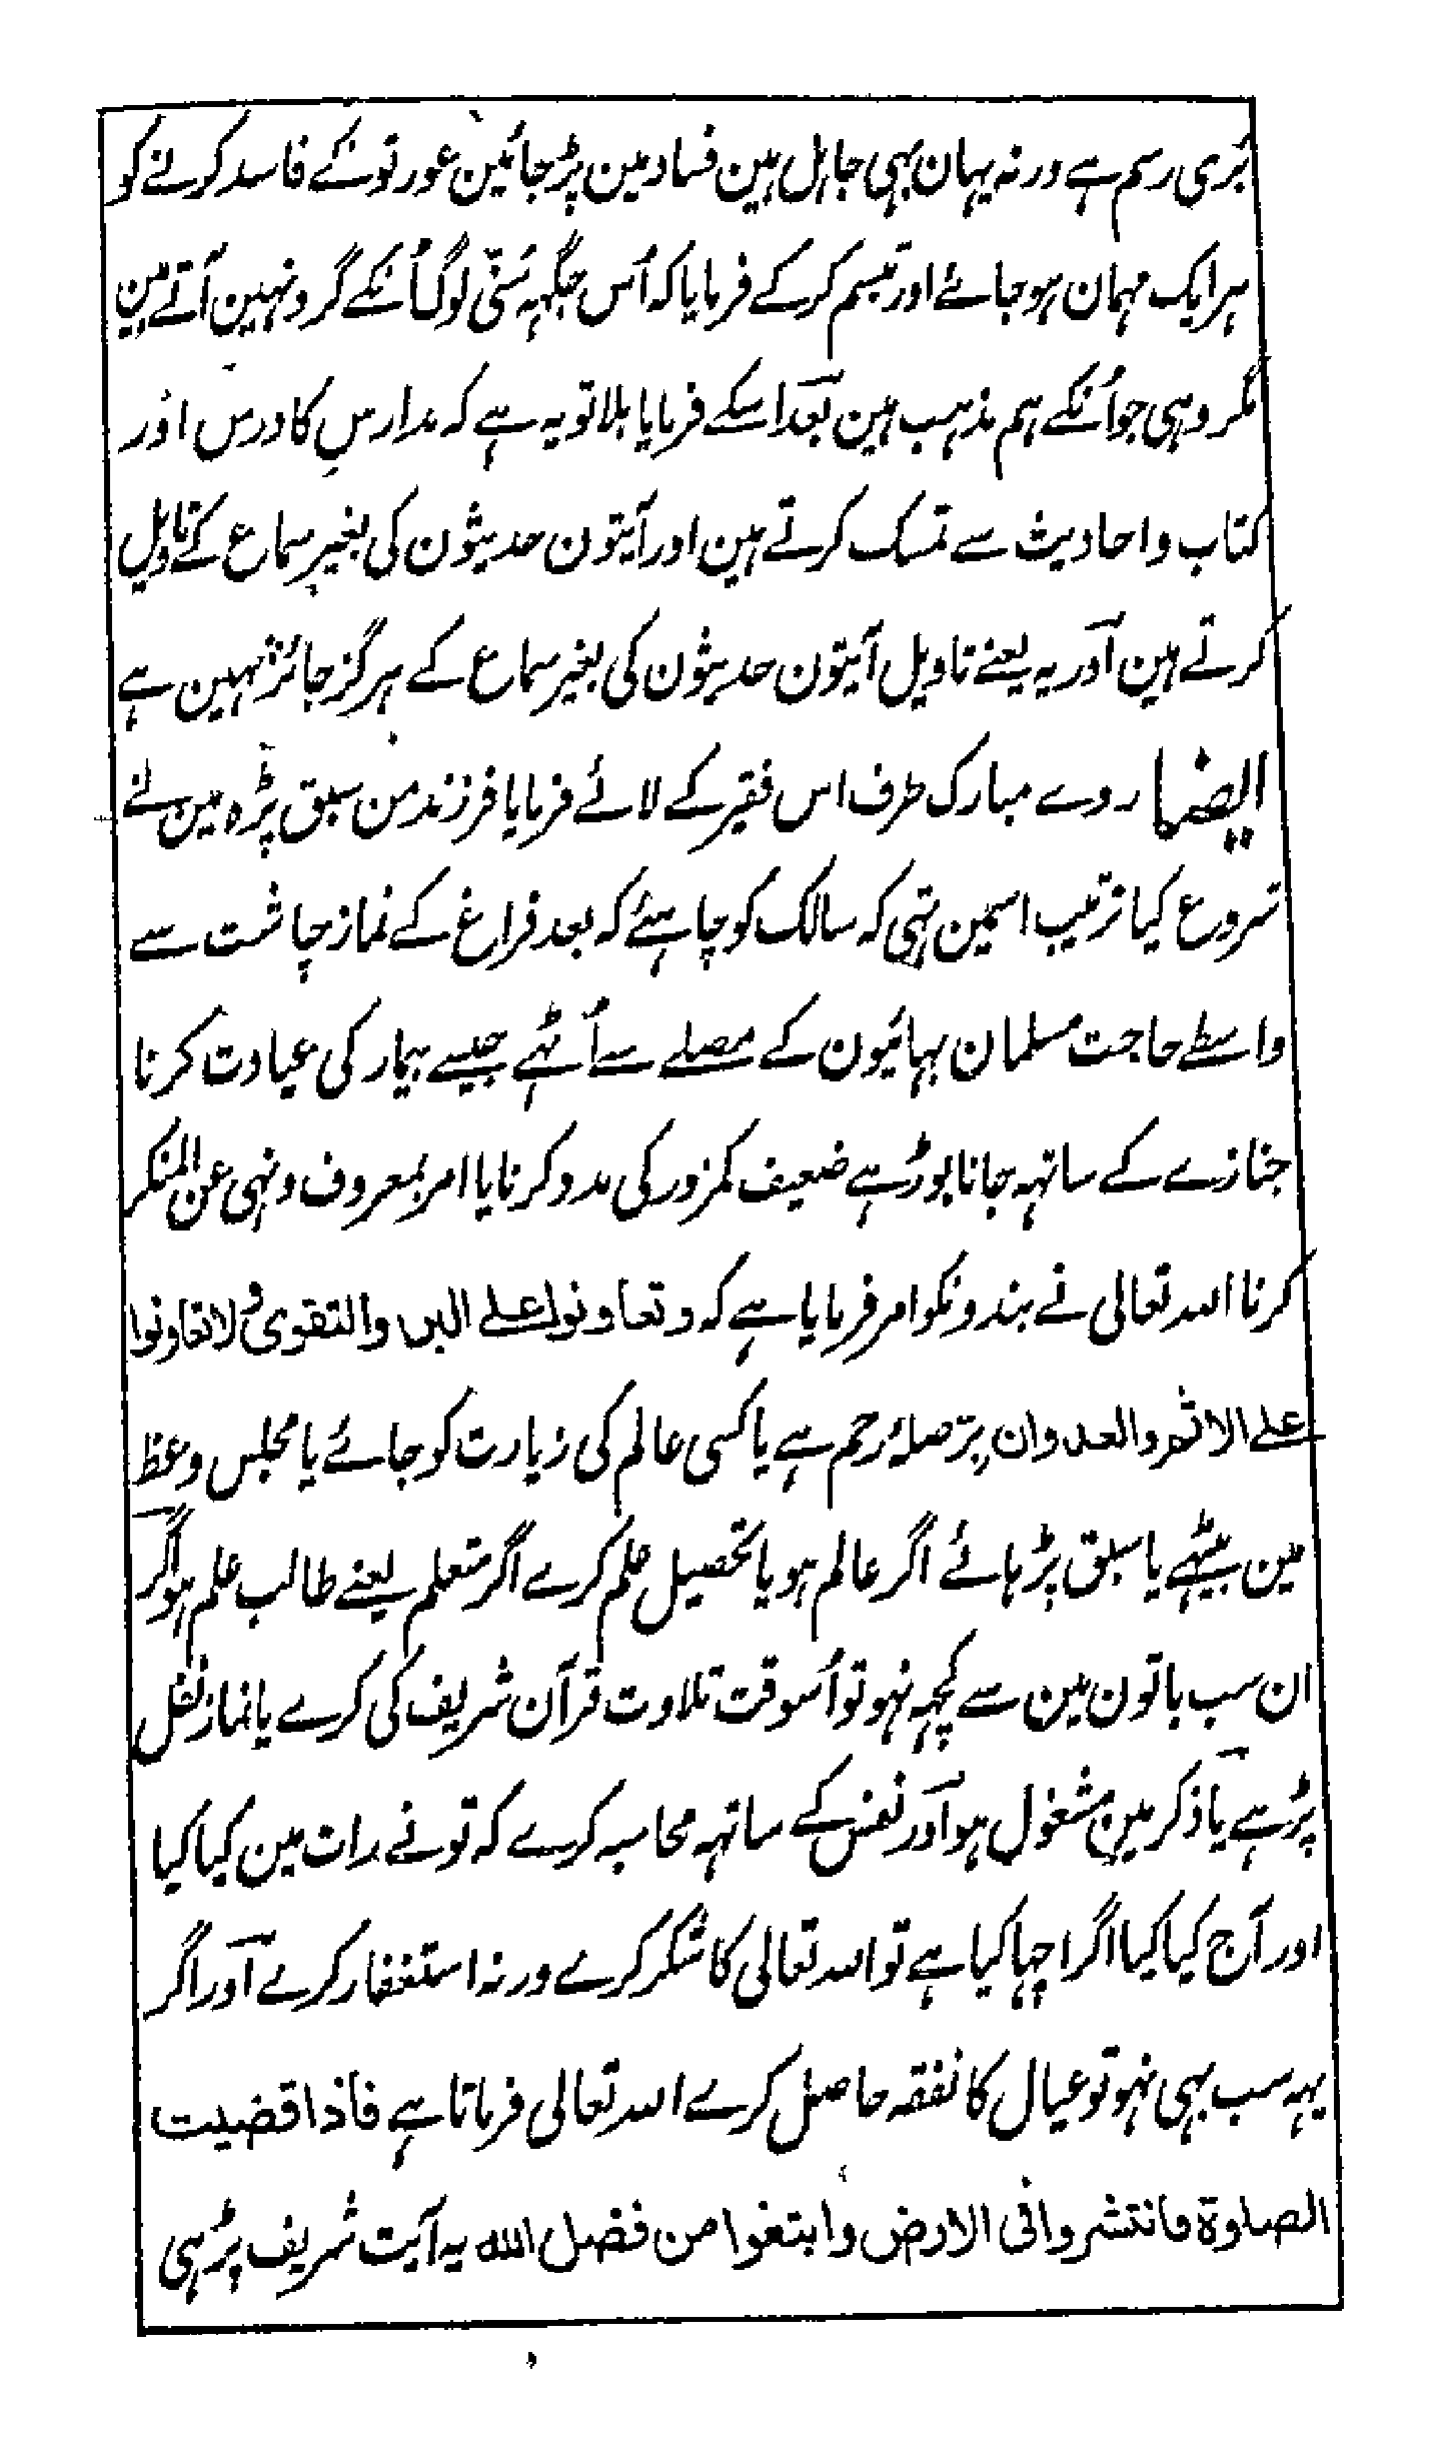 بری رسم ہے ورنہ یہان بہی جاہل ہین فساد مین پڑ جائین عورتونکے فاسد کرنے کو
ہر ایک مہمان ہو جائے اور تبسم کرکے فرمایا کہ اُس جگہہ سُنّی لوگ اُنکے گرد نہین آتے ہین
مگر وہی جو اُنکے ہم مذہب ہین بعد اسکے فرمایا بلا تو یہ ہے کہ مدارس کا درس اور
کتاب و احادیث سے تمسک کرتے ہین اور آیتون حدیثون کی بغیر سماع کے تاویل
کرتے ہین اور یہ یعنے تاویل آیتون حدیثون کی بغیر سماع کے ہرگز جائز نہین ہے
ایضا روے مبارک طرف اس فقیر کے لائے فرمایا فرزند من سبق پڑہ مین نے
شروع کیا ترتیب اسمین تہی کہ سالک کو چاہئے کہ بعد فراغ کے نماز چاشت سے
واسطے حاجت مسلمان بہائیون کے مصلے سے اُٹہے جیسے بیمار کی عیادت کرنا
جنازے کے ساتہہ جانا بوڑہے ضعیف کمزور کی مدد کرنا یا امر بمعروف و نہی عن المنکر
کرنا اللہ تعالی نے بندونکو امر فرمایا ہے کہ و تعاونوا علے البر والتقوی ولا تعاونوا
علے الاثم والعدوان پر صلۂ رحم ہے یا کسی عالم کی زیارت کو جائے یا مجلس وعظ
مین بیٹہے یا سبق پڑہائے اگر عالم ہو یا تحصیل علم کرے اگر متعلم یعنے طالب علم ہو اگر
ان سب باتون مین سے کچہہ نہو تو اُسوقت تلاوت قرآن شریف کی کرے یا نماز نفل
پڑہے یا ذکر مین مشغول ہو اور نفس کے ساتہہ محاسبہ کرے کہ تونے رات مین کیا کیا
اور آج کیا کیا اگر اچہا کیا ہے تو اللہ تعالی کا شکر کرے ورنہ استغفار کرے اور اگر
یہہ سب بہی نہو تو عیال کا نفقہ حاصل کرے اللہ تعالی فرماتا ہے فاذا قضیت
الصلوة فانتشروا فی الارض وابتغوا من فضل الله یہ آیت شریف پڑہی